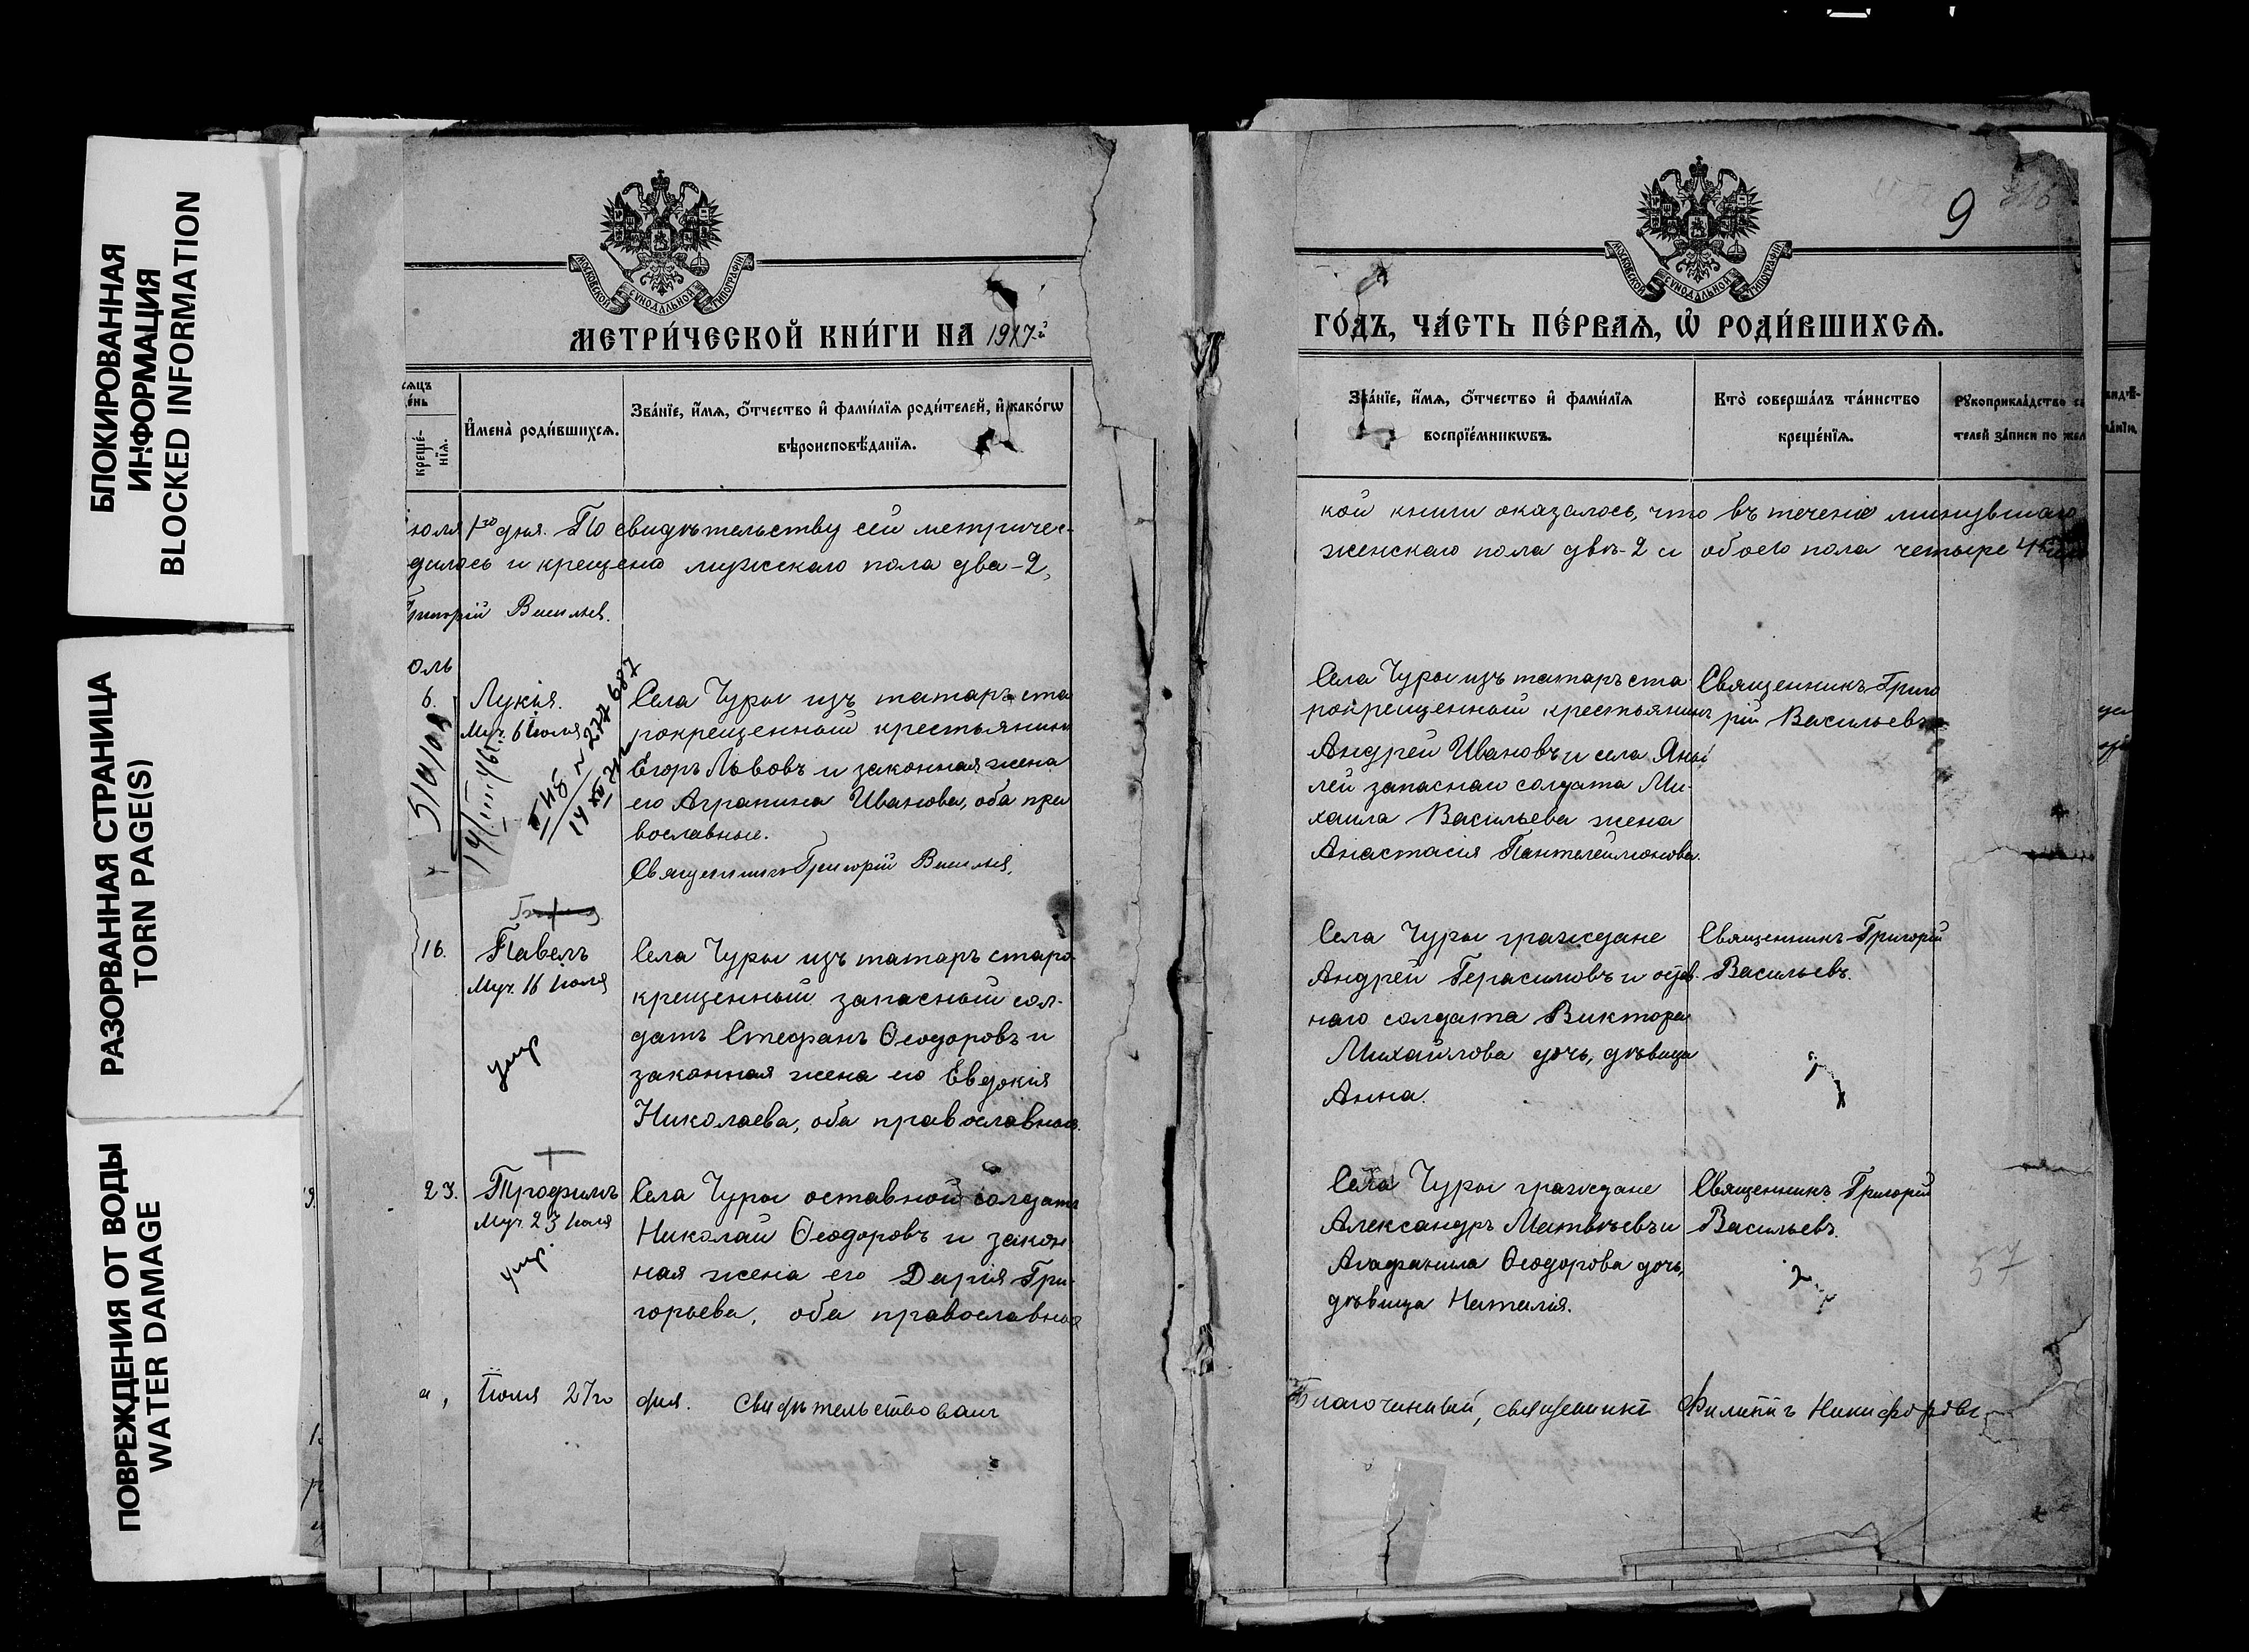 БЛОКИРОВАННАЯ
ИНФОРМАЦИЯ
BLOCKED INFORMATION
РАЗОРВАННАЯ СТРАНИЦА
TORN PAGE(S)
ПОВРЕЖДЕНИЯ ОТ ВОДЫ
WATER DAMAGE
МОСКОВСКОЙ СѴНОДАЛЬНОЙ ТИПОГРАФІИ
МЕТРИ́ЧЕСКОЙ КНИ́ГИ НА 1917
сяцъ
е́нь
креще́-
нїя.
И҆мена̀ роди́вшихся.
Зва́нїе, и҆́мя, ѻ҆́тчество и҆ фами́лїя роди́телей, и҆ како́гѡ
вѣроисповѣ́данїя.
юля 1го дня. По свидѣтельству сей метричес-
дилось и крещено мужскаго пола два - 2,
Григорій Васильев.
юль
6.
Лукія.
Муч. 6 Іюля
Села Чуры изъ татаръ ста
рокрещенный крестьянинъ
Егоръ Львовъ и законная жена
его Агрипина Иванова, оба пра
вославные.
Священникъ Григорій Васильев.
16.
Павелъ
Муч. 16 Іюля
умр
Села Чуры изъ татаръ старо
крещенный запасный сол-
датъ Стефанъ Ѳеодоровъ и
законная жена его Евдокія
Николаева, оба православные.
23.
Трофимъ
Муч. 23 Іюля
умр.
Села Чуры оставной солдатъ
Николай Ѳеодоровъ и закон
ная жена его Дарія Гри-
горьева, оба православные
Іюля 27го дня. Свидѣтельствовалъ
9
МОСКОВСКОЙ СѴНОДАЛЬНОЙ ТИПОГРАФІИ
ГО́ДЪ, ЧА́СТЬ ПЕ́РВАЯ, Ѡ҆ РОДИ́ВШИХСЯ.
Зва́нїе, и҆́мя, ѻ҆́тчество и҆ фами́лїя
воспрїе́мникѡвъ.
Кто̀ соверша́лъ та́инство
креще́нїя.
Рꙋкоприкла́дство
телей за́писи по жел
кой книги оказалось, что въ теченіе минувшаго
женскаго пола двѣ - 2 и обоего пола четыре 4
Села Чуры изъ татаръ ста
рокрещенный крестьянинъ
Андрей Ивановъ и села Яны
лей запаснаго солдата Ми-
хаила Васильева жена
Анастасія Пантелеимонова.
Священникъ Григо
рій Васильевъ
Села Чуры граждане
Андрей Герасимовъ и остав.
наго солдата Виктора
Михайлова дочь, дѣвица
Анна.
Священникъ Григорій
Васильевъ.
Села Чуры граждане
Александръ Матвѣевъ и
Агафаника Ѳеодорова дочь,
дѣвица Наталія.
Священникъ Григорій
Васильевъ.
57
Благочинный, священникъ Филиппъ Никифоровъ